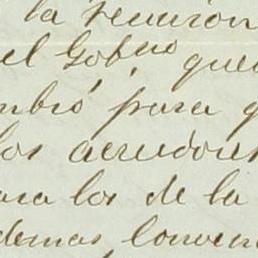 la reunion
el Gobno que
mbró para q
los acreedores
para los de la
demas, conven